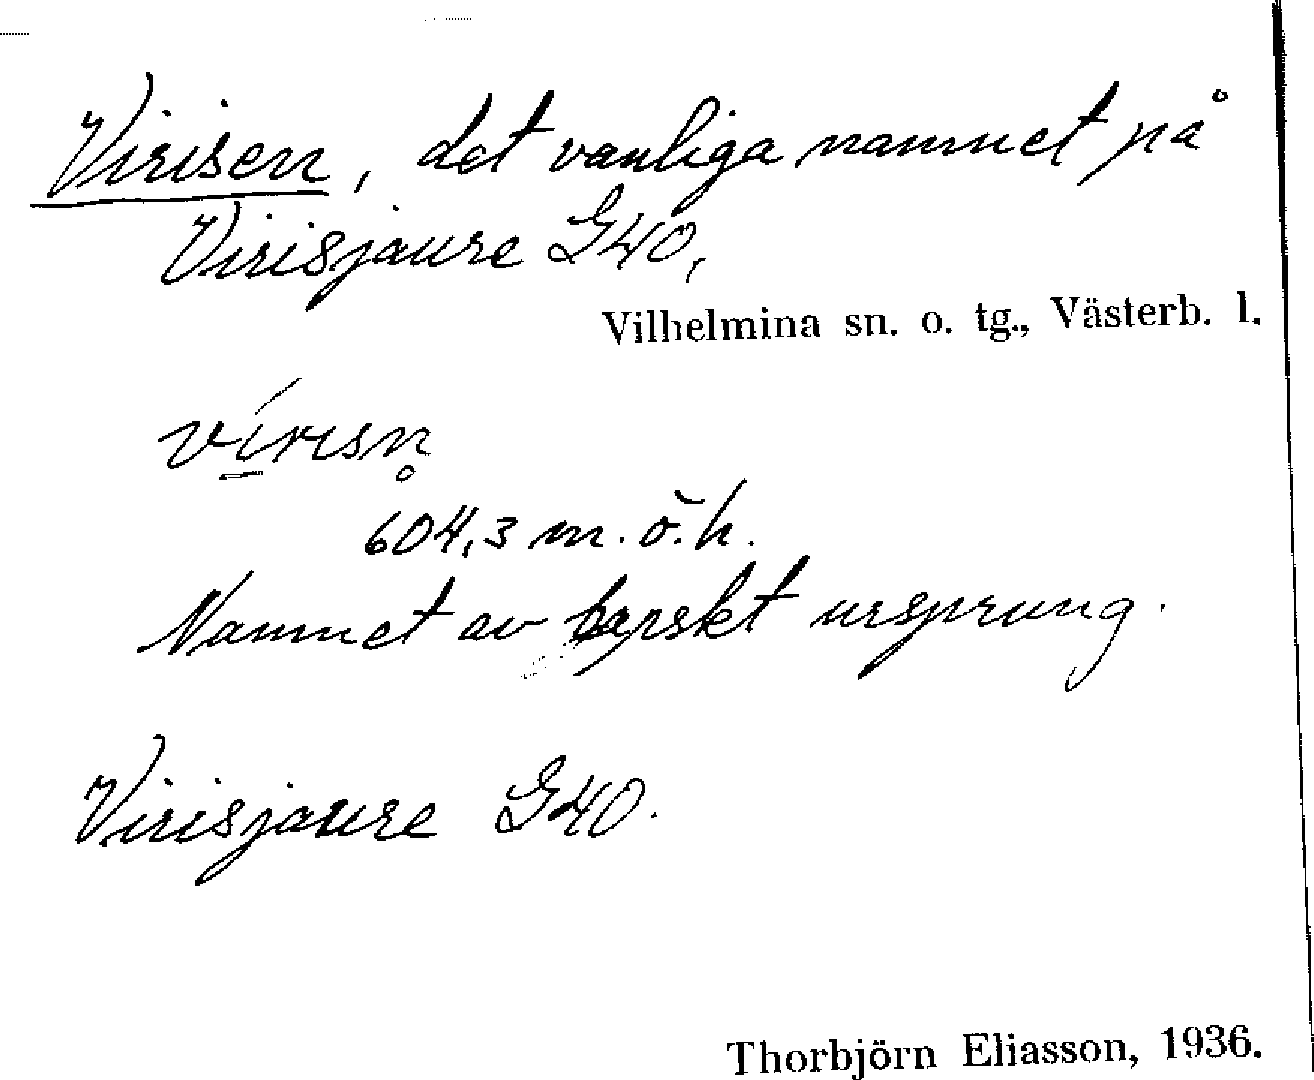 Virisen, det vanliga namnet på
Virisjaure G40,
Vilhelmina sn. o. tg., Västerb. l.
vírisn̥
604,3 m.ö.h.
Namnet av lapskt ursprung.
Virisjaure G40.
Thorbjörn Eliasson, 1936.